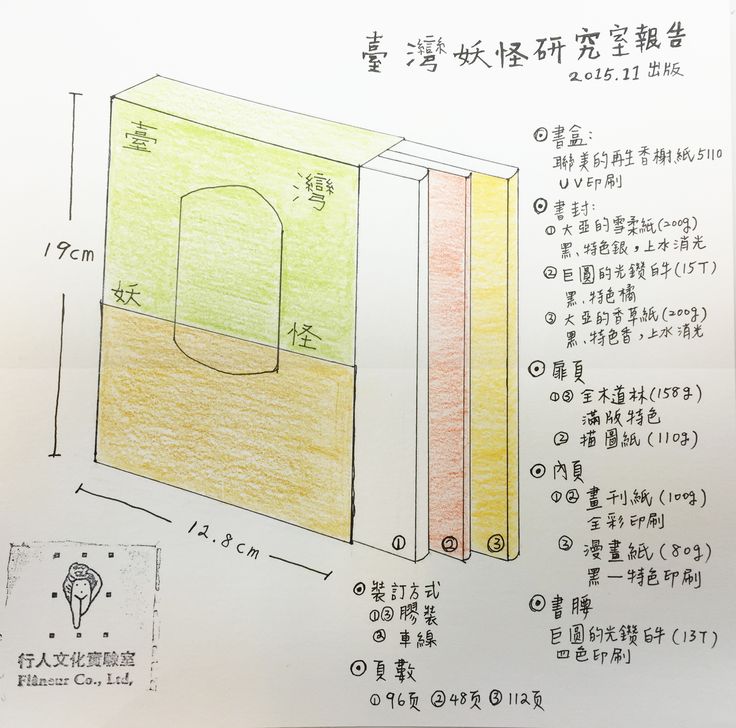 臺灣妖怪研究室報告
2015.11 出版
臺
灣
妖
怪
19cm
12.8cm
① ② ③
書盒:
聯美的再生香榭紙5110
UV印刷
書封:
① 大亞的雪柔紙(200g)
黑、特色銀，上水消光
② 巨圓的光鑽白牛(15T)
黑、特色橘
③ 大亞的香草紙(200g)
黑、特色香，上水消光
扉頁
①③ 全木道林(158g)
滿版特色
② 描圖紙(110g)
內頁
①② 畫刊紙(100g)
全彩印刷
③ 漫畫紙(80g)
黑一特色印刷
書腰
巨圓的光鑽白牛(13T)
四色印刷
裝訂方式
①③ 膠裝
② 車線
頁數
①96页 ②48页 ③112页
行人文化實驗室
Flâneur Co., Ltd,